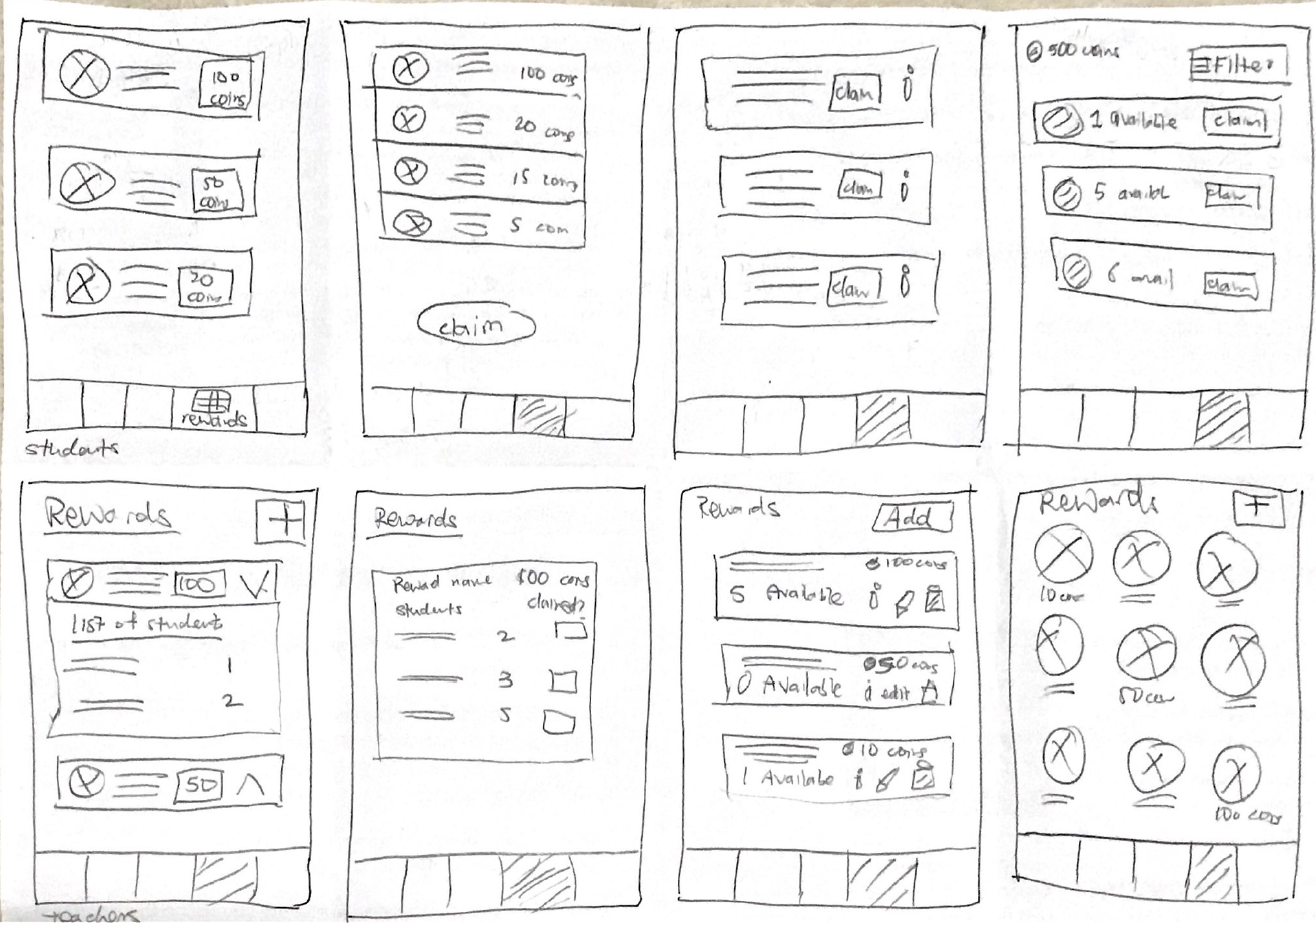 100
coins
50
coins
20
coins
rewards
students
100 coins
20 coins
15 coins
5 coin
claim
i
claim
i
claim
i
claim
500 coins
Filter
1 available
claim
5 availbl
claim
6 avail
claim
Rewards
+
100
List of student
1
2
50
teachers
Rewards
Reward name
100 coins
students
claimed?
2
3
5
Rewards
Add
100 coins
5 Available
i
50 coins
0 Available
i
edit
10 coins
1 Available
i
Rewards
+
10 coin
50 coin
100 coins